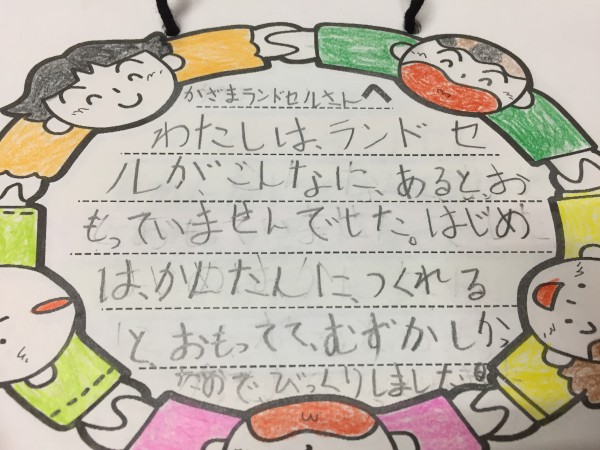 かざまランドセルさんへ
わたしは、ランドセ
ルが、こんなに、あると、お
もっていませんでした。はじめ
は、かんたんに、つくれる
と、おもってて、むずかしかっ
たので、びっくりしました。